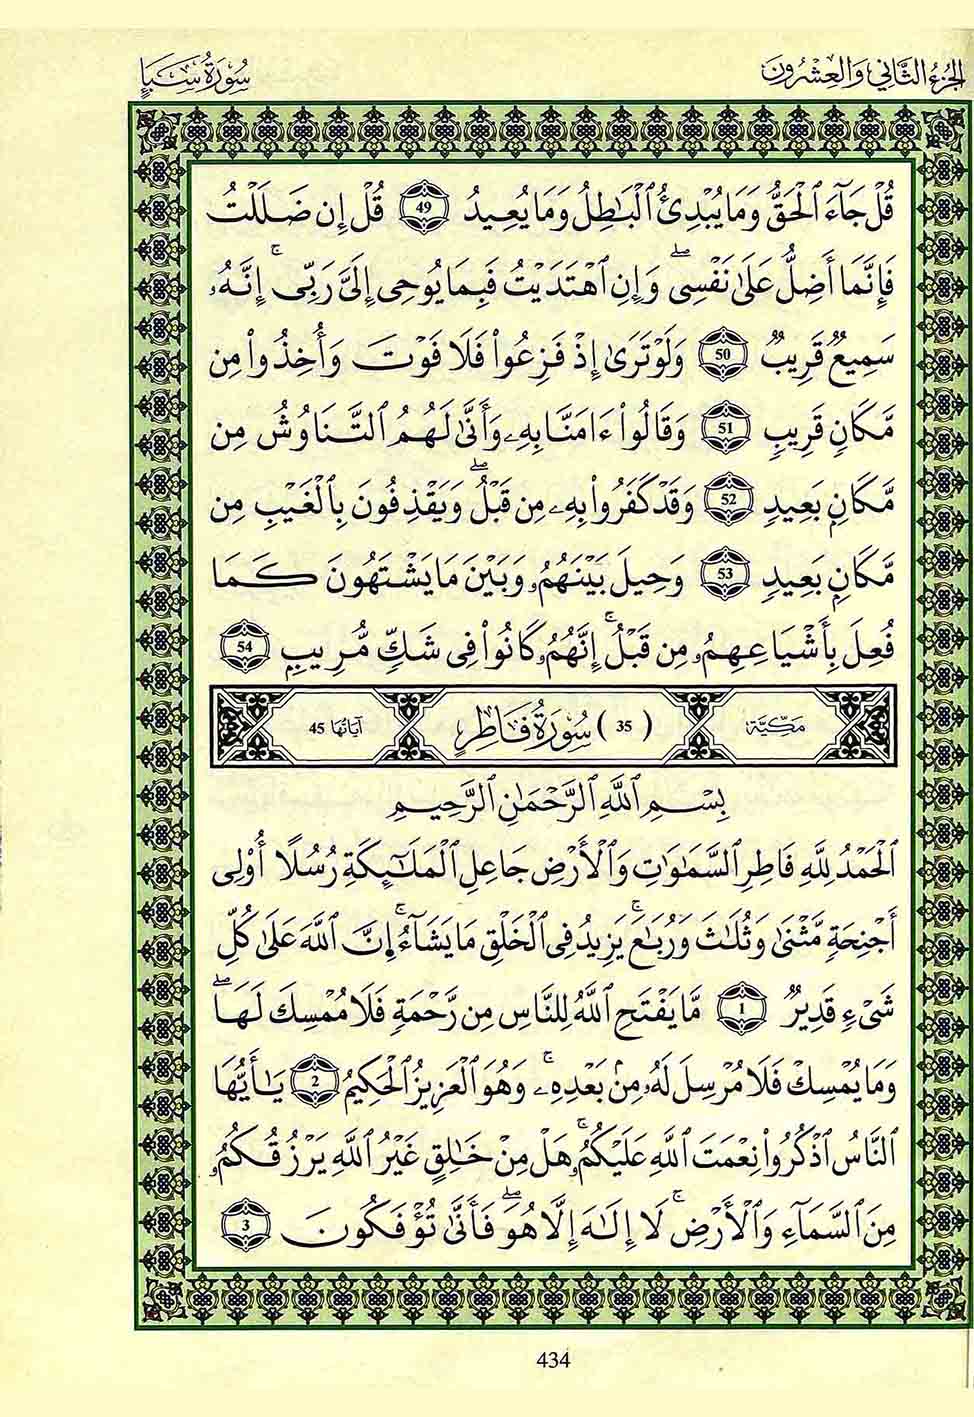 الجزء الثاني والعشرون
سورة سبإ
قُلْ جَآءَ ٱلْحَقُّ وَمَا يُبْدِئُ ٱلْبَٰطِلُ وَمَا يُعِيدُ 49 قُلْ إِن ضَلَلْتُ
فَإِنَّمَآ أَضِلُّ عَلَىٰ نَفْسِى ۖ وَإِنِ ٱهْتَدَيْتُ فَبِمَا يُوحِى إِلَىَّ رَبِّى ۚ إِنَّهُۥ
سَمِيعٌ قَرِيبٌ 50 وَلَوْ تَرَىٰ إِذْ فَزِعُوا۟ فَلَا فَوْتَ وَأُخِذُوا۟ مِن
مَّكَانٍ قَرِيبٍ 51 وَقَالُوٓا۟ ءَامَنَّا بِهِۦ وَأَنَّىٰ لَهُمُ ٱلتَّنَاوُشُ مِن
مَّكَانٍۭ بَعِيدٍ 52 وَقَدْ كَفَرُوا۟ بِهِۦ مِن قَبْلُ ۖ وَيَقْذِفُونَ بِٱلْغَيْبِ مِن
مَّكَانٍۭ بَعِيدٍ 53 وَحِيلَ بَيْنَهُمُۥ وَبَيْنَ مَا يَشْتَهُونَ كَمَا
فُعِلَ بِأَشْيَاعِهِمُۥ مِن قَبْلُ ۚ إِنَّهُمُۥ كَانُوا۟ فِى شَكٍّ مُّرِيبٍۭ 54
مكية (35) سورة فاطر آياتها 45
بِسْمِ ٱللَّهِ ٱلرَّحْمَٰنِ ٱلرَّحِيمِ
ٱلْحَمْدُ لِلَّهِ فَاطِرِ ٱلسَّمَٰوَٰتِ وَٱلْأَرْضِ جَاعِلِ ٱلْمَلَٰٓئِكَةِ رُسُلًا أُو۟لِى
أَجْنِحَةٍ مَّثْنَىٰ وَثُلَٰثَ وَرُبَٰعَ ۚ يَزِيدُ فِى ٱلْخَلْقِ مَا يَشَآءُ ۚ إِنَّ ٱللَّهَ عَلَىٰ كُلِّ
شَىْءٍ قَدِيرٌ 1 مَّا يَفْتَحِ ٱللَّهُ لِلنَّاسِ مِن رَّحْمَةٍ فَلَا مُمْسِكَ لَهَا ۖ
وَمَا يُمْسِكْ فَلَا مُرْسِلَ لَهُۥ مِنۢ بَعْدِهِۦ ۚ وَهُوَ ٱلْعَزِيزُ ٱلْحَكِيمُ 2 يَٰٓأَيُّهَا
ٱلنَّاسُ ٱذْكُرُوا۟ نِعْمَتَ ٱللَّهِ عَلَيْكُمُۥ ۚ هَلْ مِنْ خَٰلِقٍ غَيْرُ ٱللَّهِ يَرْزُقُكُمُۥ
مِنَ ٱلسَّمَآءِ وَٱلْأَرْضِ ۚ لَآ إِلَٰهَ إِلَّا هُوَ ۖ فَأَنَّىٰ تُؤْفَكُونَ 3
434